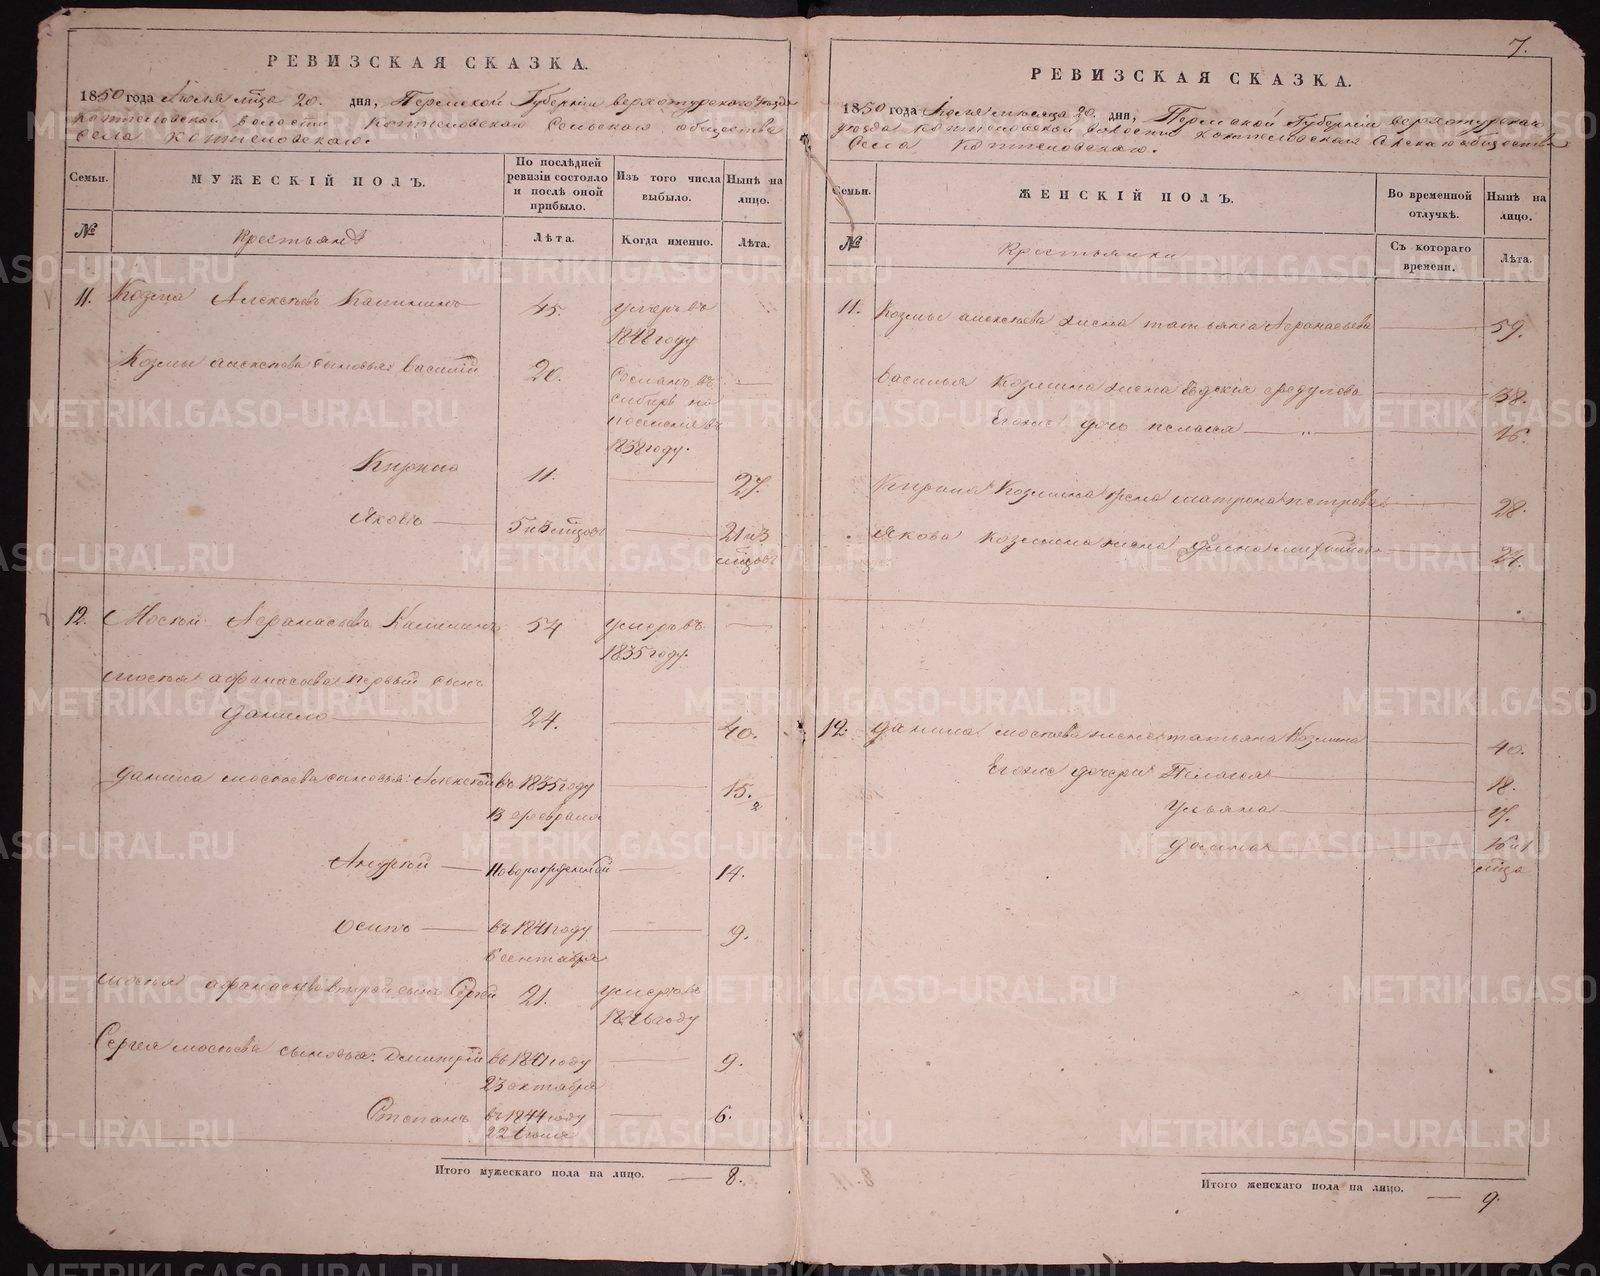 РЕВИЗСКАЯ СКАЗКА.
1850 года Іюля мѣца 20. дня, Пермской Губерніи верхотурскаго уѣзда
коптеловской волости Коптеловскаго Сельскаго общества
села коптеловскаго.
Семьи.
МУЖЕСКІЙ ПОЛЪ.
По послѣдней ревизіи состояло и послѣ оной прибыло.
Изъ того числа выбыло.
Нынѣ на лицо.
№
Крестьяне
Лѣта.
Когда именно.
Лѣта.
11. Козма Алексѣевъ Калининъ 45. умеръ въ
1848 году
Козмы алексѣева сыновья: василій 20. Сосланъ въ —
сибирь на
поселеніе въ
1838 году.
Кирило 11. — 27.
Яковъ — 5 и 3 мѣцовъ — 21 и 3
мѣцовъ
12. Мосѣй Афанасьевъ Калининъ 54 умеръ въ —
1835 году.
Мосѣя афанасьева первый сынъ
Данило — 24. — 40.
Данила мосѣева сыновья: Алексѣй въ 1835 году — 15.
13 февраля
Андрей — Новорожденный — 14.
Осипъ — въ 1841 году — 9.
6 сентября
Мосѣя афанасьева второй сынъ Сергей 21. умеръ въ
1846 году
Сергея мосѣева сыновья: Дмитрій въ 1841 году — 9.
23 октября
Степанъ въ 1844 году — 6.
22 Іюля
Итого мужескаго пола на лицо. — 8.
7.
РЕВИЗСКАЯ СКАЗКА.
1850 года Іюля месяца 20. дня, Пермской Губерніи верхотурскаго
уезда коптеловской волости коптеловскаго Сельскаго общества
Села Коптеловскаго.
Семьи.
ЖЕНСКІЙ ПОЛЪ.
Во временной отлучкѣ.
Нынѣ на лицо.
№
Крестьянки
Съ котораго времени.
Лѣта.
11. Козмы алексѣева жена татьяна Афанасьева — 59.
Василья Козмина жена Евдокія федулова — 38.
Его дочь пелагея — „ — 16.
Кирила Козмина жена матрона петрова 28.
Якова козмина жена 24.
12. Данила мосѣева жена татьяна Козмина — 40.
Его дочери Пелагея — 18.
Ульяна — 17.
— 16 и 1
мѣца
Итого женскаго пола на лицо. — 9.
METRIKI.GASO-URAL.RU